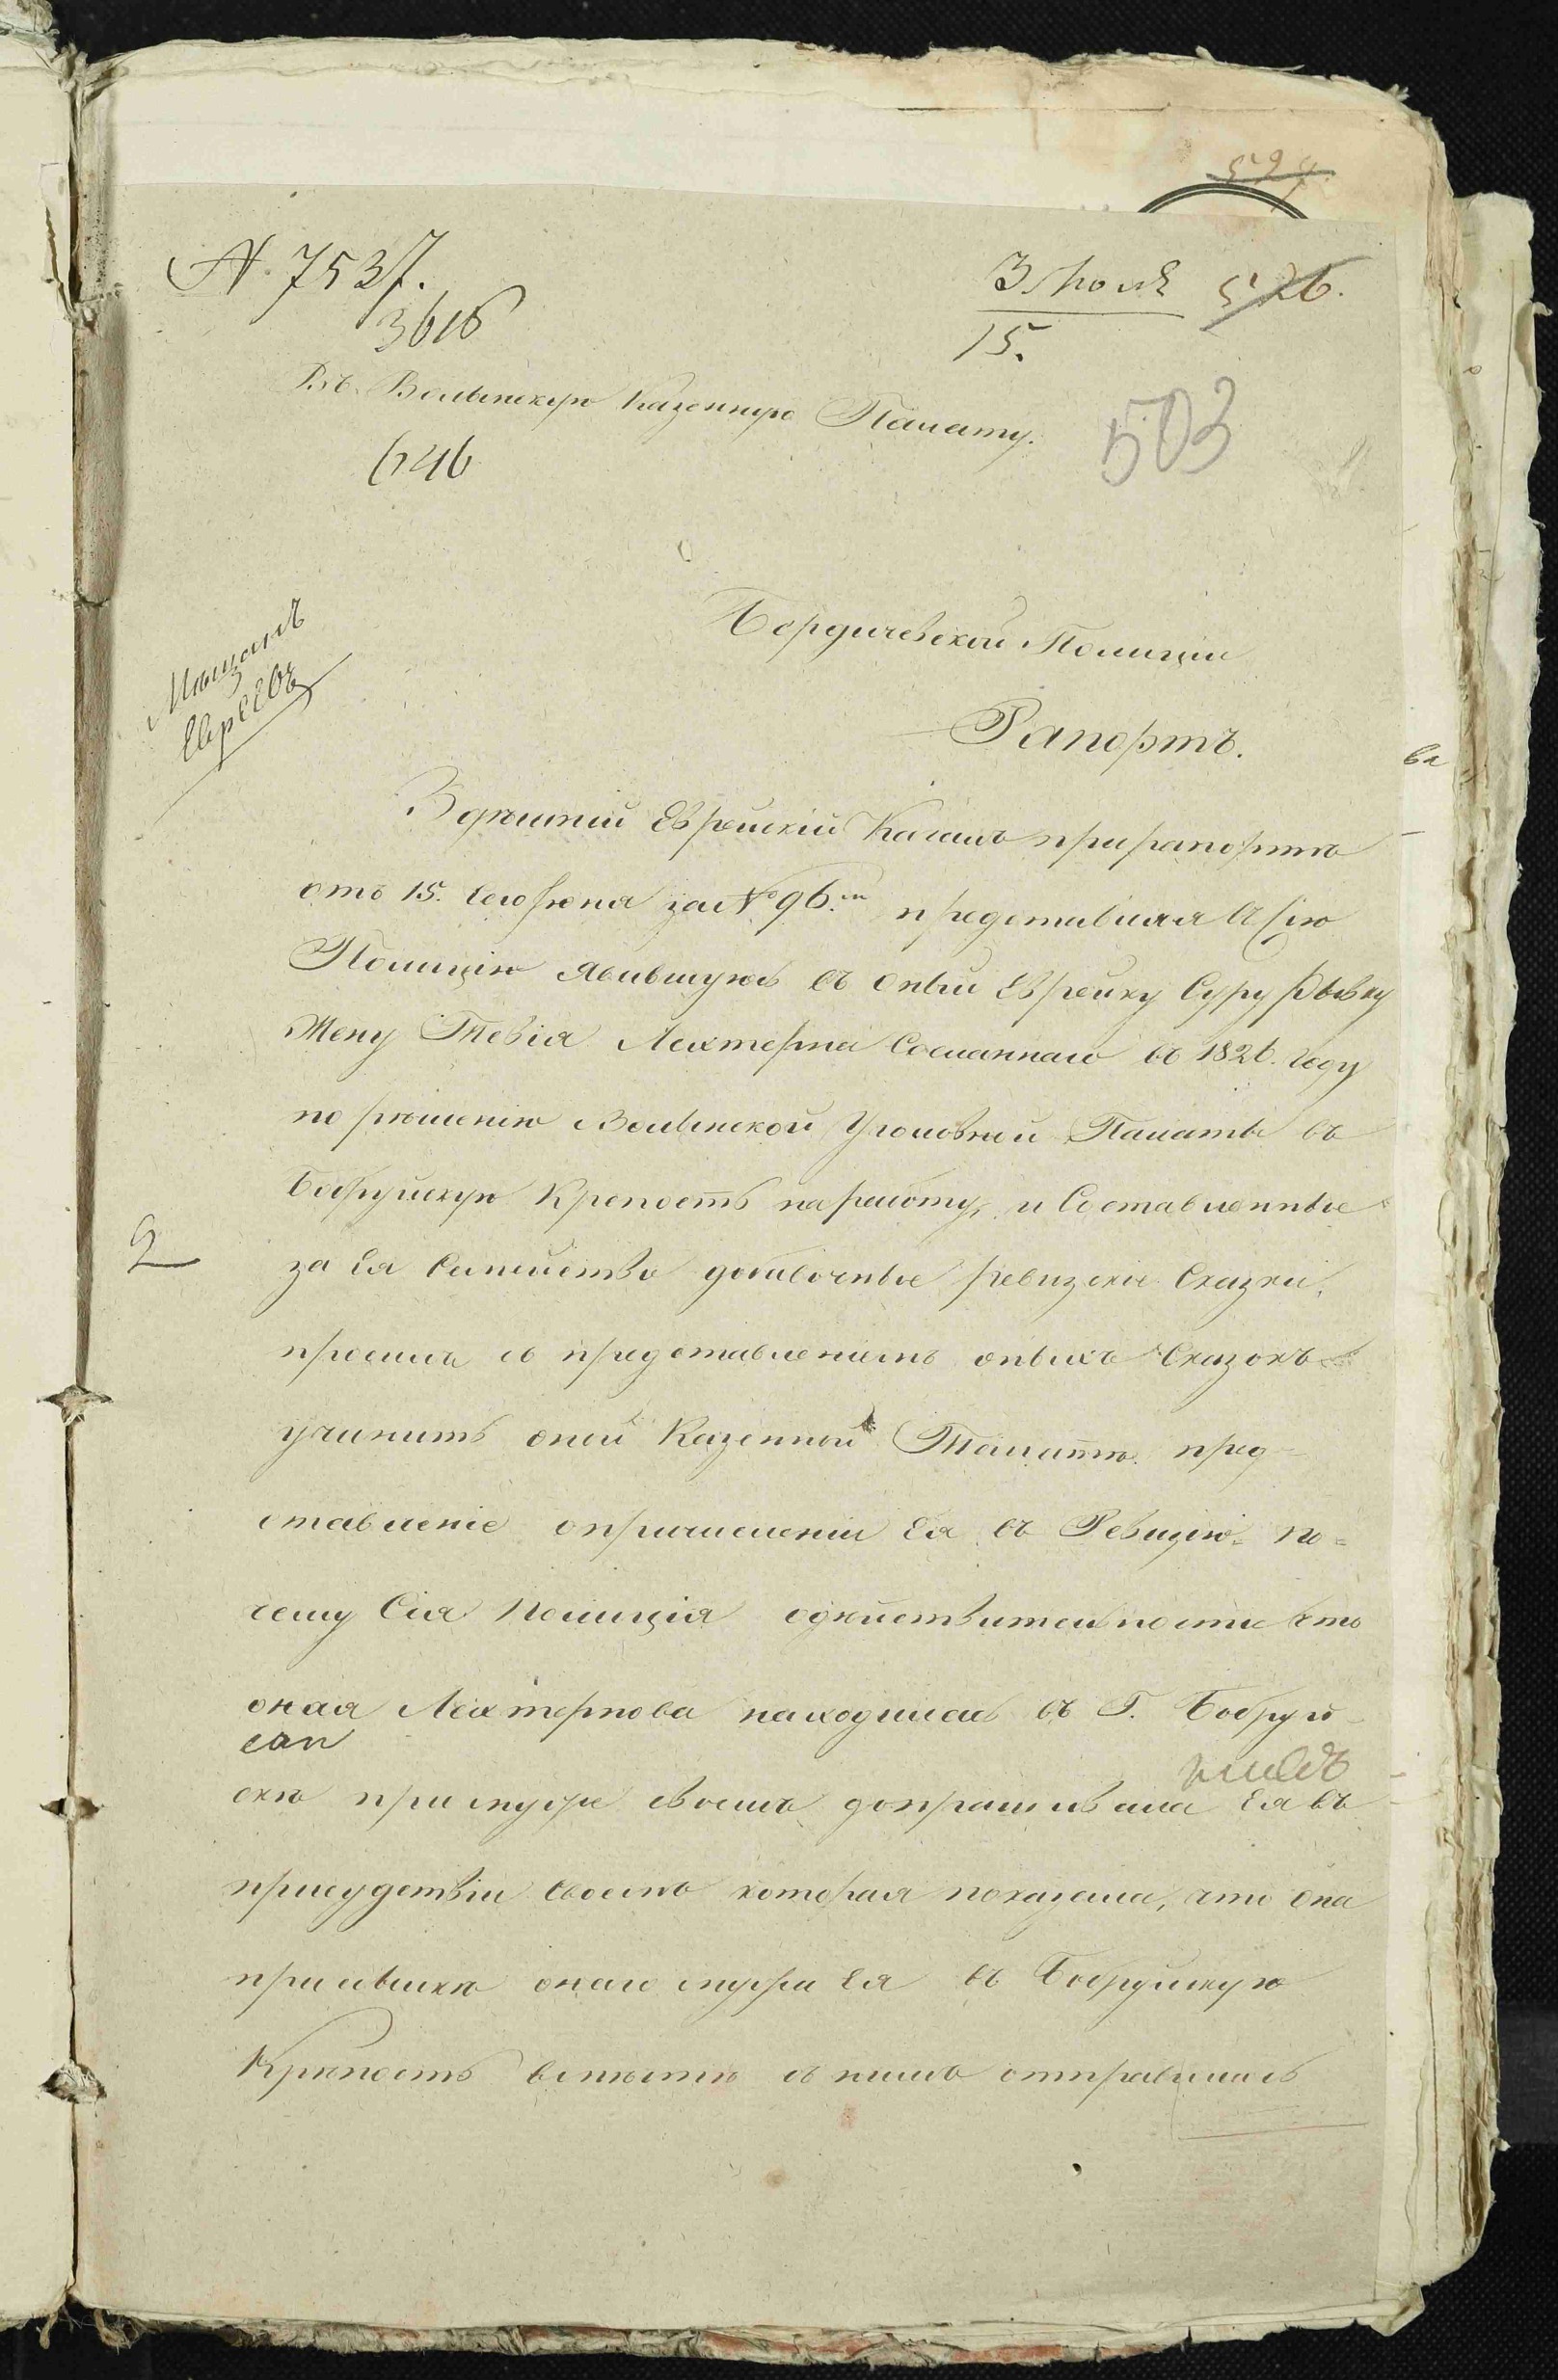 524
№ 7537.
3 Июля 526.
3616
15.
Въ Волынскую Казенную Палату.
503
646
Бердичевской Полиціи
Мещанъ
Евреевъ
Рапортъ.
Здѣшній Еврейскій Кагалъ при рапортѣ
отъ 15. сего Іюня за № 96.м представляя в Сію
Полицію явившуюсь въ оный Еврейку Суру Рывку
Жену Тевія Лехтерна Сосланнаго въ 1826. Году
по рѣшенію Волынской Уголовной Палаты въ
Бобруйскую Крепость на работу, и Составленные
за Ея Семейство добавочные ревизскіе Сказки,
просилъ съ представленіемъ оныхъ Сказокъ
учинить оной Казенной Палатѣ пред-
ставленіе опричисленіи Ея въ Ревизію. по=
чему Сія Полиція одѣйствительности что
оная Лехтернова находилась въ Г. Бобруй-
скѣ при мужѣ своемъ допрашивала Ея въ
присудствіи своемъ которая показала, что она
при высылкѣ онаго мужа Ея въ Бобруйскую
Крѣпость вмѣстѣ съ нимъ отправилась